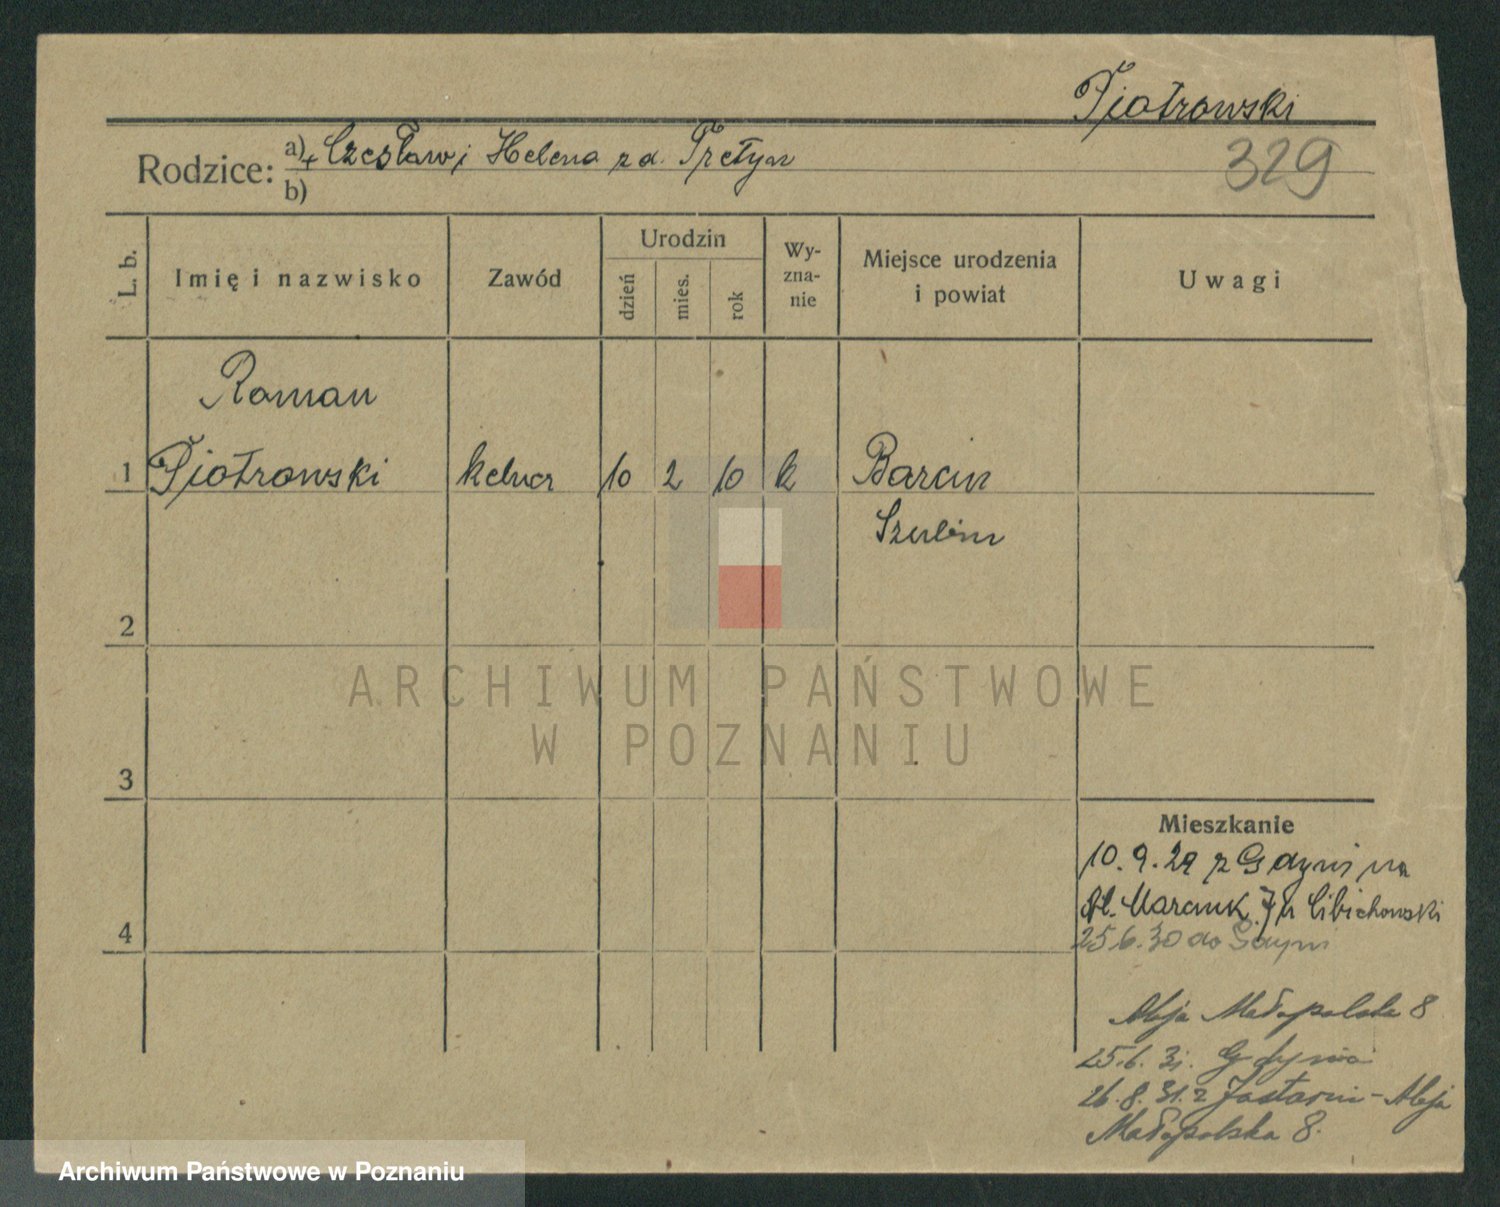 Piotrowski
329
Rodzice:
a) + Czesław i Helena z d.
b)
L. b.
Imię i nazwisko
Zawód
Urodzin
dzień
mies.
rok
Wy-
zna-
nie
Miejsce urodzenia
i powiat
Uwagi
Roman
1 Piotrowski kelner 10 2 10 k Barcin
Szubin
2
3
4
ARCHIWUM PAŃSTWOWE
W POZNANIU
Mieszkanie
10.9.29 z Gdyni na
Marcink. 7 u Cibichowski
25.6.30 do Gdyni
Aleja Małopolska 8
25.6.31. Gdynia
26.8.31. z Jastarni - Aleja
Małopolska 8.
Archiwum Państwowe w Poznaniu